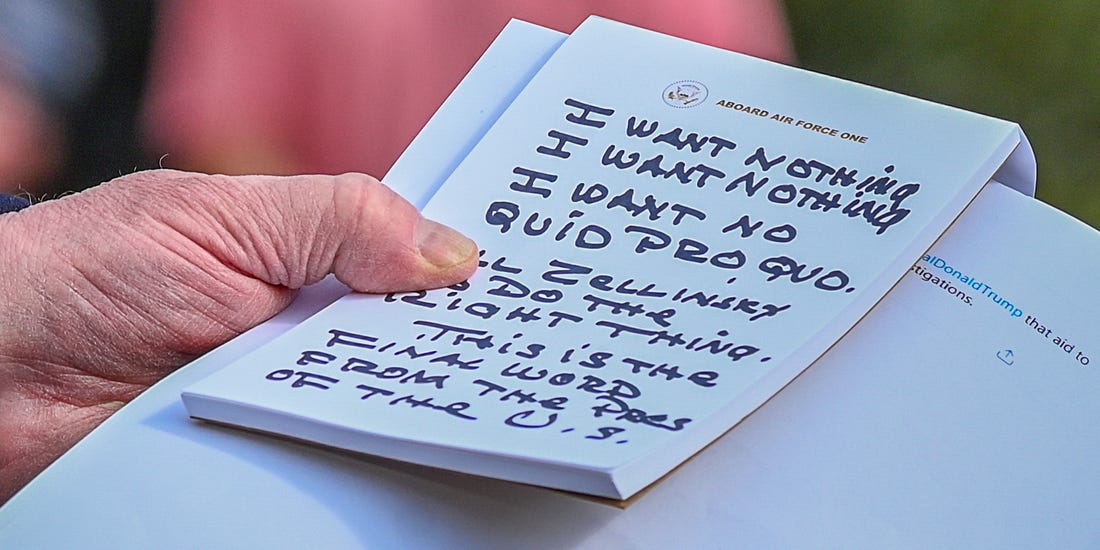 ABOARD AIR FORCE ONE
I WANT NOTHING
I WANT NOTHING
I WANT NO
QUID PRO QUO.
ZELLINSKY
DO THE
RIGHT THING.
THIS IS THE
FINAL WORD
FROM THE PRES
OF THE U.S.
alDonaldTrump that aid to
stigations.